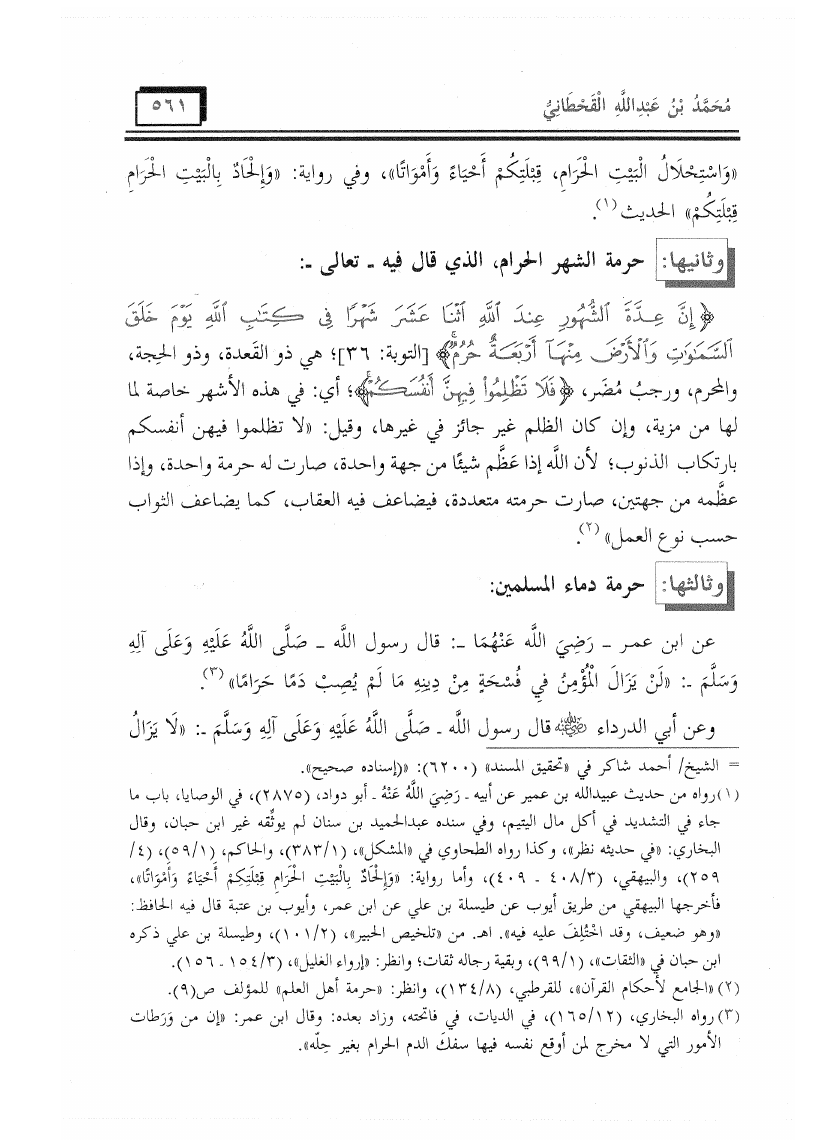 مُحَمَّدُ بْنُ عَبْدِاللَّهِ الْقَحْطَانِيُّ
٥٦١
«وَاسْتِحْلَالُ الْبَيْتِ الْحَرَامِ، قِبْلَتِكُمْ أَحْيَاءً وَأَمْوَاتًا»، وفي رواية: «وَإِلْحَادٌ بِالْبَيْتِ الْحَرَامِ
قِبْلَتِكُمْ» الحديث (١).
وثانيها: حرمة الشهر الحرام، الذي قال فيه ـ تعالى ـ:
﴿إِنَّ عِدَّةَ ٱلشُّهُورِ عِندَ ٱللَّهِ ٱثْنَا عَشَرَ شَهْرًا فِى كِتَـٰبِ ٱللَّهِ يَوْمَ خَلَقَ
ٱلسَّمَـٰوَٰتِ وَٱلْأَرْضَ مِنْهَآ أَرْبَعَةٌ حُرُمٌ ۚ﴾ [التوبة: ٣٦]؛ هي ذو القَعدة، وذو الحِجة،
والمحرم، ورجبُ مُضَر، ﴿فَلَا تَظْلِمُوا۟ فِيهِنَّ أَنفُسَكُمْ ۚ﴾؛ أي: في هذه الأشهر خاصة لما
لها من مزية، وإن كان الظلم غير جائز في غيرها، وقيل: «لا تظلموا فيهن أنفسكم
بارتكاب الذنوب؛ لأن الله إذا عَظَّم شيئًا من جهة واحدة، صارت له حرمة واحدة، وإذا
عظَّمه من جهتين، صارت حرمته متعددة، فيضاعف فيه العقاب، كما يضاعف الثواب
حسب نوع العمل» (٢).
وثالثها: حرمة دماء المسلمين:
عن ابن عمر ـ رَضِيَ اللَّه عَنْهُمَا ـ: قال رسول اللَّه ـ صَلَّى اللَّهُ عَلَيْهِ وَعَلَى آلِهِ
وَسَلَّمَ ـ: «لَنْ يَزَالَ الْمُؤْمِنُ فِي فُسْحَةٍ مِنْ دِينِهِ مَا لَمْ يُصِبْ دَمًا حَرَامًا» (٣).
وعن أبي الدرداء رضي الله عنه قال رسول الله ـ صَلَّى اللَّهُ عَلَيْهِ وَعَلَى آلِهِ وَسَلَّمَ ـ: «لَا يَزَالُ
= الشيخ/ أحمد شاكر في «تحقيق المسند» (٦٢٠٠): «إسناده صحيح».
(١) رواه من حديث عبيدالله بن عمير عن أبيه ـ رَضِيَ اللَّهُ عَنْهُ ـ أبو دواد، (٢٨٧٥)، في الوصايا، باب ما
جاء في التشديد في أكل مال اليتيم، وفي سنده عبدالحميد بن سنان لم يوثِّقه غير ابن حبان، وقال
البخاري: «في حديثه نظر»، وكذا رواه الطحاوي في «المشكل»، (٣٨٣/١)، والحاكم، (٥٩/١)، (٤/
٢٥٩)، والبيهقي، (٤٠٨/٣ ـ ٤٠٩)، وأما رواية: «وَإِلْحَادٌ بِالْبَيْتِ الْحَرَامِ قِبْلَتِكِمْ أَحْيَاءً وَأَمْوَاتًا»،
فأخرجها البيهقي من طريق أيوب عن طيسلة بن علي عن ابن عمر، وأيوب بن عتبة قال فيه الحافظ:
«وهو ضعيف، وقد اخْتُلِفَ عليه فيه». اهـ. من «تلخيص الحبير»، (١٠١/٢)، وطيسلة بن علي ذكره
ابن حبان في «الثقات»، (٩٩/١)، وبقية رجاله ثقات؛ وانظر: «إرواء الغليل»، (١٥٤/٣ ـ ١٥٦).
(٢) «الجامع لأحكام القرآن»، للقرطبي، (١٣٤/٨)، وانظر: «حرمة أهل العلم» للمؤلف ص(٩).
(٣) رواه البخاري، (١٦٥/١٢)، في الديات، في فاتحته، وزاد بعده: وقال ابن عمر: «إن من وَرَطات
الأمور التي لا مخرج لمن أوقع نفسه فيها سفكَ الدم الحرام بغير حِلّه».